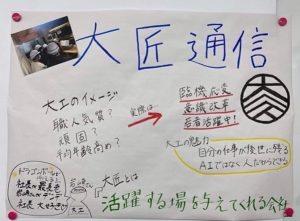 大匠通信
大工のイメージ
職人気質？
頑固？
平均年齢高め？
実際は
臨機応変
意識改革
若者活躍中！
大工の魅力
自分の仕事が後世に残る
AIではなく人だからできる
大匠とは
活躍する場を与えてくれる会社
ドラゴンボール
社長が
社長 大好き
大工